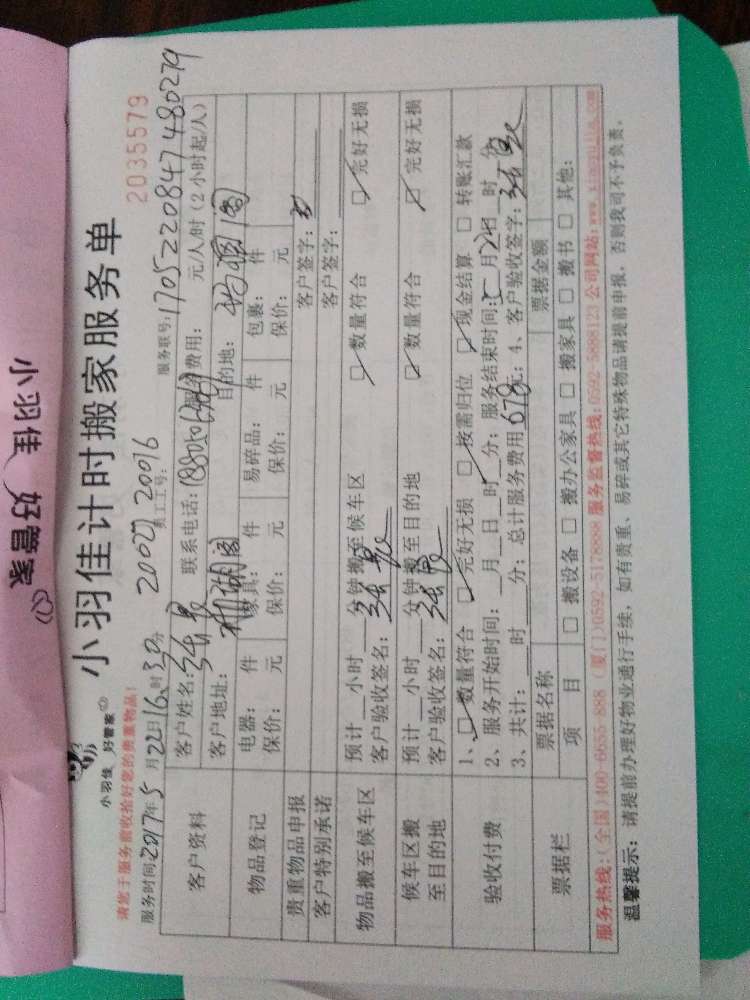 小羽佳 好管家
小羽佳 好管家
小羽佳计时搬家服务单
2035579
请您于服务前收拾好您的贵重物品!
服务时间:2017年5月22日16时30分 20027 20016 员工工号: 服务联号:170522084747480279
客户资料
客户姓名: 联系电话: 服务费用: 元/人/时(2小时起/人)
客户地址: 目的地:
物品登记
电器: 件 家具: 件 易碎品: 件 包裹: 件
保价: 元 保价: 元 保价: 元 保价: 元
贵重物品申报 客户签字:
客户特别承诺 客户签字:
物品搬至候车区
预计 小时 分钟搬至候车区 □数量符合 □完好无损
客户验收签名:
候车区搬至目的地
预计 小时 分钟搬至目的地 □数量符合 □完好无损
客户验收签名:
验收付费
1、□数量符合 □完好无损 □按需归位 □现金结算 □转账汇款
2、服务开始时间: 月 日 时 分; 服务结束时间: 月 日 时 分
3、共计: 时 分; 总计服务费用678元; 4、客户验收签字:
票据栏
票据名称 票据金额
项目 □搬设备 □搬办公家具 □搬家具 □搬书 □其他:
服务热线:(全国)400-6655-888 (厦门)0592-5178888 服务监督热线:0592-5888123 公司网站:www.xiaoyujia.com
温馨提示: 请提前办理好物业通行手续, 如有贵重、易碎或其它特殊物品请提前申报, 否则我司不予负责。